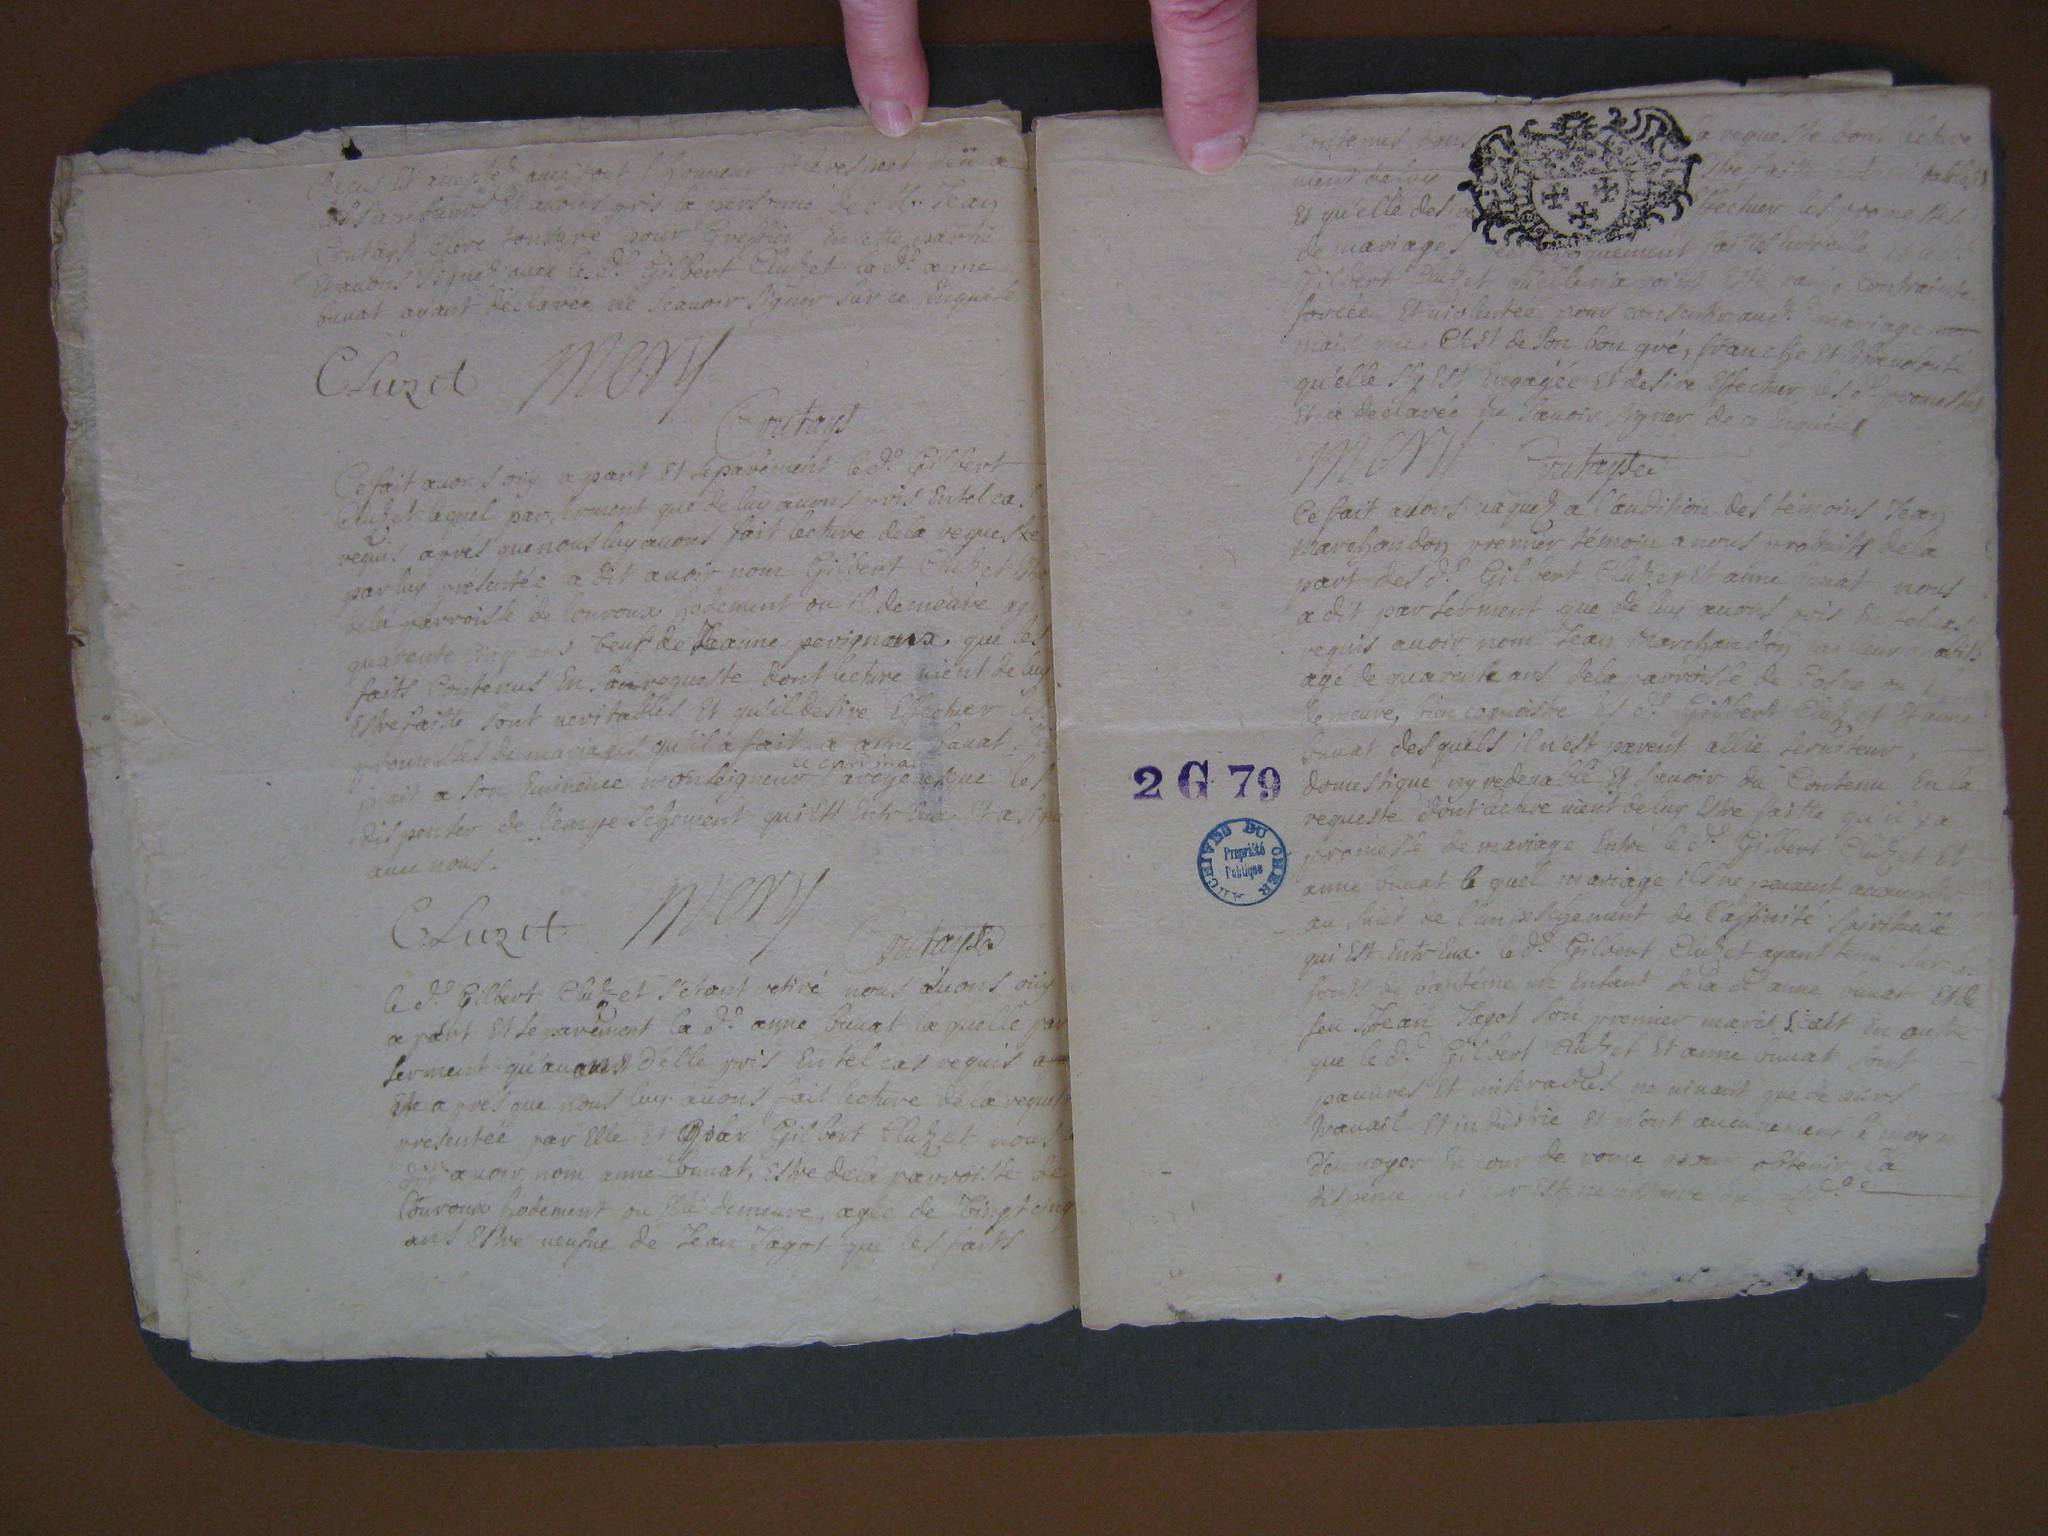 Receus et accepté avec tout l'honneur et le respect deü a
et avons pris la personne de Mr Jean
Coutays Clerc tonsuré pour Greffier en cette partie
et avons signé avec le d. Gilbert Cluzet la d. anne
buvat ayant declarée ne scavoir signer sur ce Enquise
Cluzet Mery
Coutays
Ce fait avons oüy a part et separément le d. Gilbert
Cluzet lequel par serment que de luy avons pris en tel cas
requis apres que nous luy avons fait lecture de la requeste
par luy presentée a dit avoir nom Gilbert Cluzet
de la parroisse de Louroux hodement ou il demeure agé
quarente cinq ans veuf de Jeanne perignaux que les
faits contenus en sa requeste dont lecture vient de luy
estre faitte sont veritables et qu'il desire effectuer les
promesses de mariages qu'il a fait a anne buvat
plait a son Eminence monseigneur le cardinal l'archevesque les
dispenser de l'empeschement qui est entr'eux et a signé
avec nous.
Cluzet Mery
Coutays
le d. Gilbert Cluzet s'étant retiré nous avons oüy
a part et separément la d. anne buvat laquelle par
serment qu'avons d'elle pris en tel cas requis
apres que nous luy avons fait lecture de la requeste
presentée par elle et par Gilbert Cluzet nous a
dit avoir nom anne buvat, estre de la parroisse de
Louroux hodement ou elle demeure, agée de vingt cinq
ans estre veufve de Jean Jagot que les faits
contenus dans la requeste dont lecture
vient de luy estre faitte
et qu'elle desire effectuer les promesses
de mariages reciproquement faittes entr'elle et
Gilbert Cluzet qu'elle n'a point esté contrainte
forcée et violentée pour consentir aud. mariage
mais que c'est de son bon gré, franche et
qu'elle s'y est engagée et desire effectuer les d. promesses
et a declarée ne scavoir signer de ce enquise
Mery Coutays
Ce fait avons vaquez a l'audition des témoins Jean
Marchandon premier témoin a nous produits de la
part des d. Gilbert Cluzet et anne buvat nous
a dit par serment que de luy avons pris en tel cas
requis avoir nom Jean Marchandon
agé de quarente ans de la parroisse de Cosne ou il
demeure, bien connoistre les d. Gilbert Cluzet et anne
buvat desquels il n'est parent allié, serviteur,
domestique ny redevable et scavoir du contenu en la
requeste dont lecture vient de luy estre faitte qu'il y a
promesse de mariage entre le d. Gilbert Cluzet et
anne buvat le quel mariage ils ne peuvent
au sujet de l'empeschement de l'affinité spirituelle
qui est entr'eux le d. Gilbert Cluzet ayant tenu sur les
fonts de baptéme un enfant de la d. anne buvat et de
feu Jean Jagot son premier mary scait en outre
que le d. Gilbert Cluzet et anne buvat sont
pauvres et miserables ne vivant que de leurs
travail et industrie et n'ont aucunement le moyen
d'envoyer en cour de rome pour obtenir la
dispense qui leur est necessaire
2 G 79
ARCHIVES DU CHER
Propriété
Publique